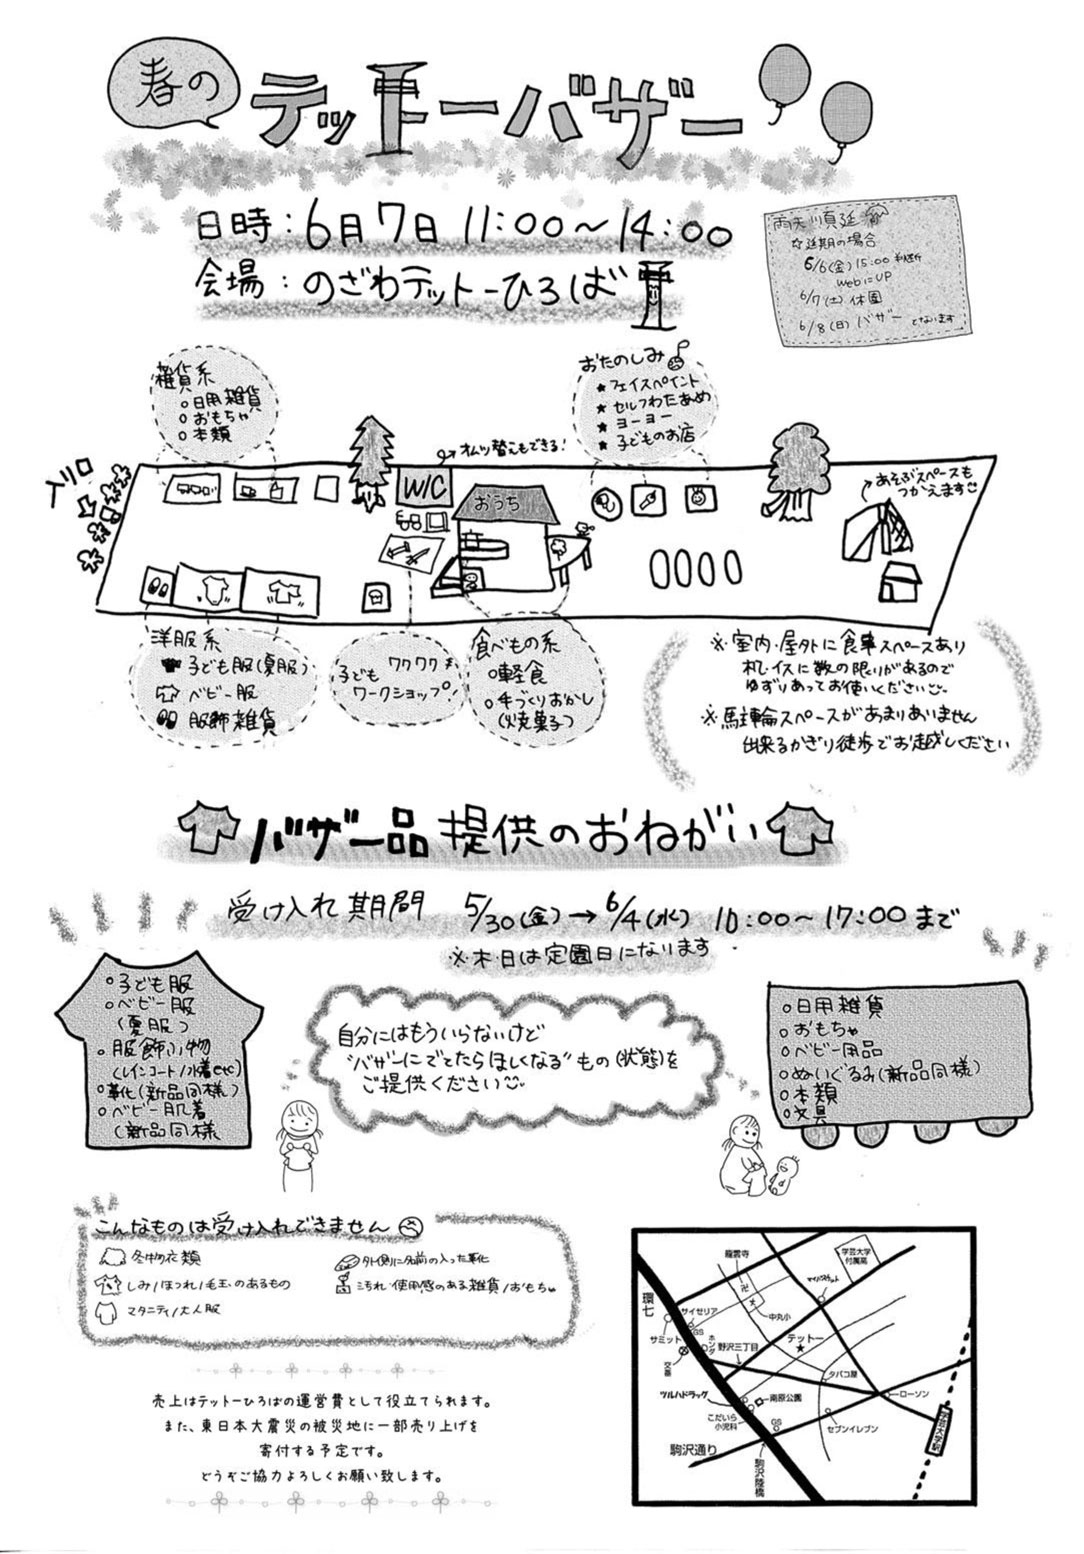 春の
テットーバザー
日時：6月7日 11:00～14:00
会場：のざわテットーひろば
雨天順延
☆延期の場合
6/6(金)15:00 判断
webにUP
6/7(土)休園
6/8(日)バザー
雑貨系
○日用雑貨
○おもちゃ
○本類
おたのしみ
★フェイスペイント
★セルフわたあめ
★ヨーヨー
★子どものお店
オムツ替えもできる!
入リ口
W/C
おうち
あそぶスペースも
つかえます
洋服系
子ども服(夏服)
ベビー服
服飾雑貨
子どもワクワク
ワークショップ!
食べもの系
○軽食
○手づくりおかし
(焼菓子)
※室内・屋外に食事スペースあり
机・イスに数の限りがあるので
ゆずりあってお使いください
※駐輪スペースがあまりありません
出来るかぎり徒歩でお越しください
バザー品提供のおねがい
受け入れ期間 5/30(金)→6/4(水) 10:00～17:00まで
※木・日は定園日になります
○子ども服
○ベビー服
(夏服)
○服飾小物
(レインコート/水着etc)
○革化(新品同様)
○ベビー肌着
(新品同様
自分にはもういらないけど
"バザーにでてたらほしくなる"もの(状態)を
ご提供ください
○日用雑貨
○おもちゃ
○ベビー用品
○ぬいぐるみ(新品同様)
○本類
○文具
こんなものは受け入れできません
冬物衣類
しみ/ほつれ/毛玉のあるもの
マタニティ/大人服
外(側)に名前の入った革化
汚れ・使用感のある雑貨/おもちゃ
売上はテットーひろばの運営費として役立てられます。
また、東日本大震災の被災地に一部売り上げを
寄付する予定です。
どうぞご協力よろしくお願い致します。
龍雲寺
学芸大学
付属高
マイバスケット
環七
卍
文
サイゼリア
中丸小
GS
サミット
ホンダ
野沢三丁目
テットー
★
交番
タバコ屋
ツルハドラッグ
南原公園
ローソン
こだいら
小児科
GS
セブンイレブン
学芸大学駅
駒沢通り
駒沢陸橋